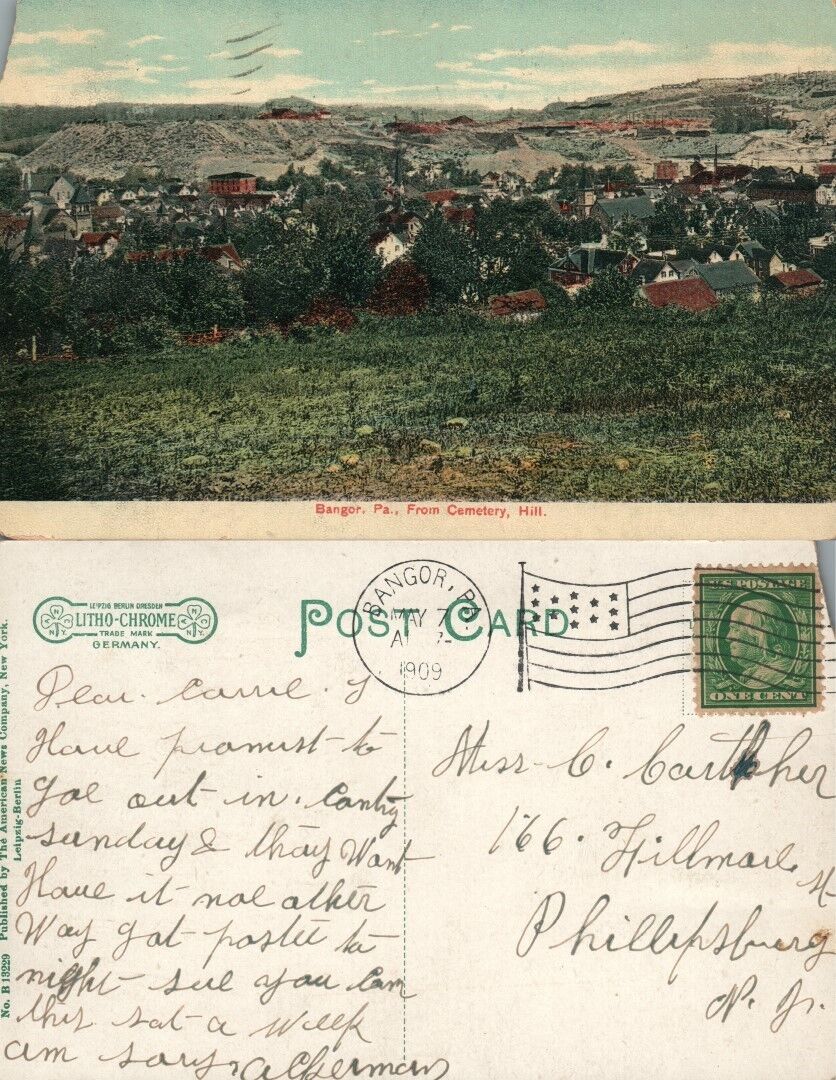 Bangor, Pa., From Cemetery, Hill.
LEIPZIG BERLIN DRESDEN
LITHO-CHROME
TRADE MARK
GERMANY.
N Y
N Y
POST CARD
BANGOR, PA.
MAY 7
1909
U.S. POSTAGE
ONE CENT
No. B 13229 Published by The American News Company, New York.
Leipzig-Berlin
Dear. Carrie. I
Have promust to
Goe out in. Contry
Sunday & thay Want
Have it noe other
Way got postee to
night see you Can
this sat a Week
am sory, Ackerman
Miss. C.
166. Fillmore
Phillipsburg
N. J.